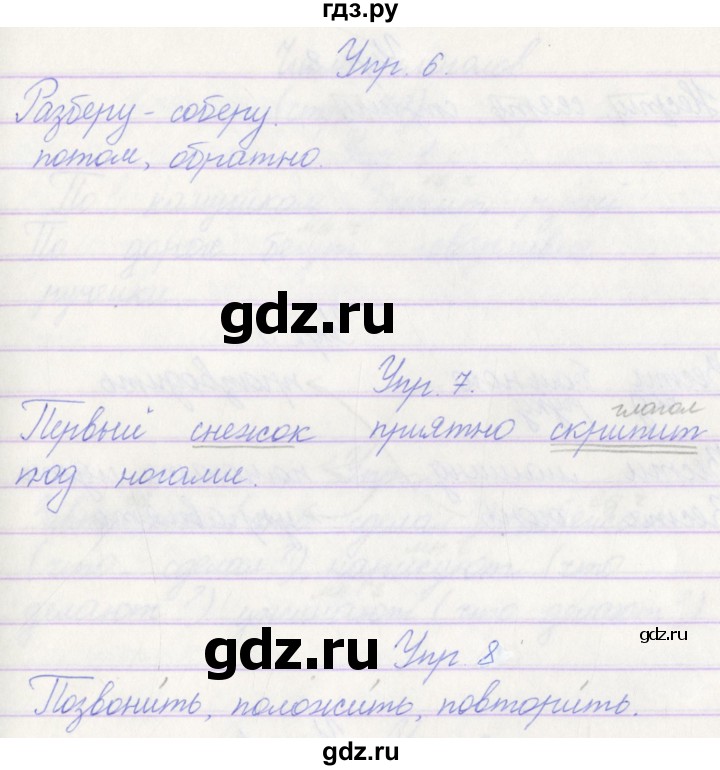 гдз.ру
Упр. 6.
Разберу - соберу.
потом, обратно.
gdz.ru
Упр. 7.
глагол
Первый снежок приятно скрипит
под ногами.
gdz.ru
gdz.ru
Упр. 8
Позвони́ть, положи́ть, повтори́ть.
gdz.ru